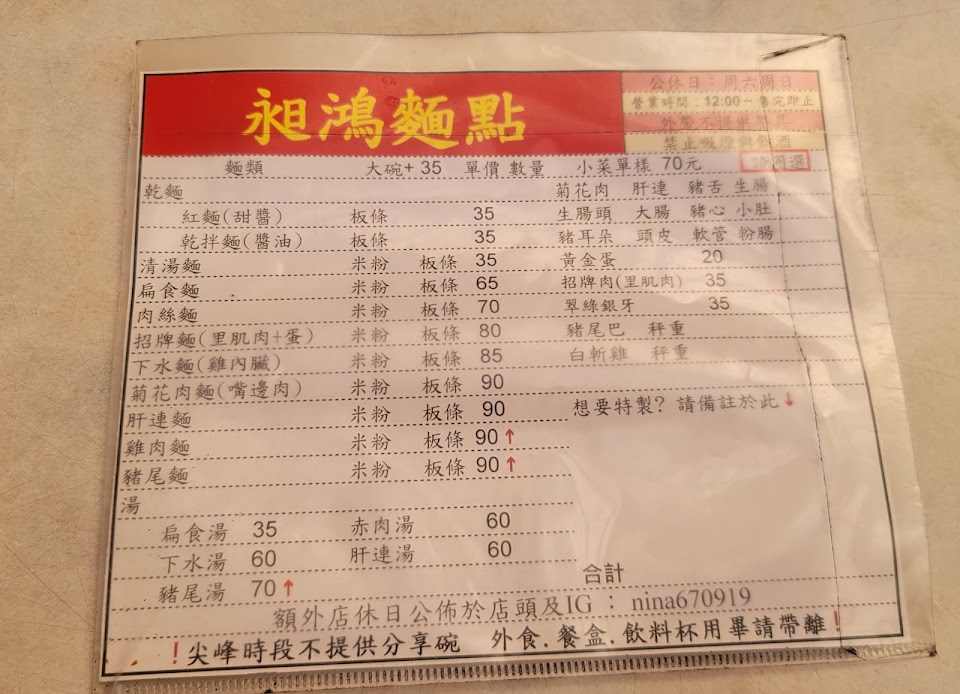 昶鴻麵點
公休日：周六周日
營業時間：12:00~ 售完即止
外帶不提供餐具
禁止吸煙與飲酒
麵類 大碗+ 35 單價 數量 小菜單樣 70元 請圈選
乾麵 菊花肉 肝連 豬舌 生腸
紅麵(甜醬) 板條 35 生腸頭 大腸 豬心 小肚
乾拌麵(醬油) 板條 35 豬耳朵 頭皮 軟管 粉腸
清湯麵 米粉 板條 35 黃金蛋 20
扁食麵 米粉 板條 65 招牌肉(里肌肉) 35
肉絲麵 米粉 板條 70 翠綠銀牙 35
招牌麵(里肌肉+蛋) 米粉 板條 80 豬尾巴 秤重
下水麵(雞內臟) 米粉 板條 85 白斬雞 秤重
菊花肉麵(嘴邊肉) 米粉 板條 90
肝連麵 米粉 板條 90 想要特製? 請備註於此↓
雞肉麵 米粉 板條 90↑
豬尾麵 米粉 板條 90↑
湯
扁食湯 35 赤肉湯 60
下水湯 60 肝連湯 60
豬尾湯 70↑ 合計
額外店休日公佈於店頭及IG : nina670919
!尖峰時段不提供分享碗 外食.餐盒.飲料杯用畢請帶離!